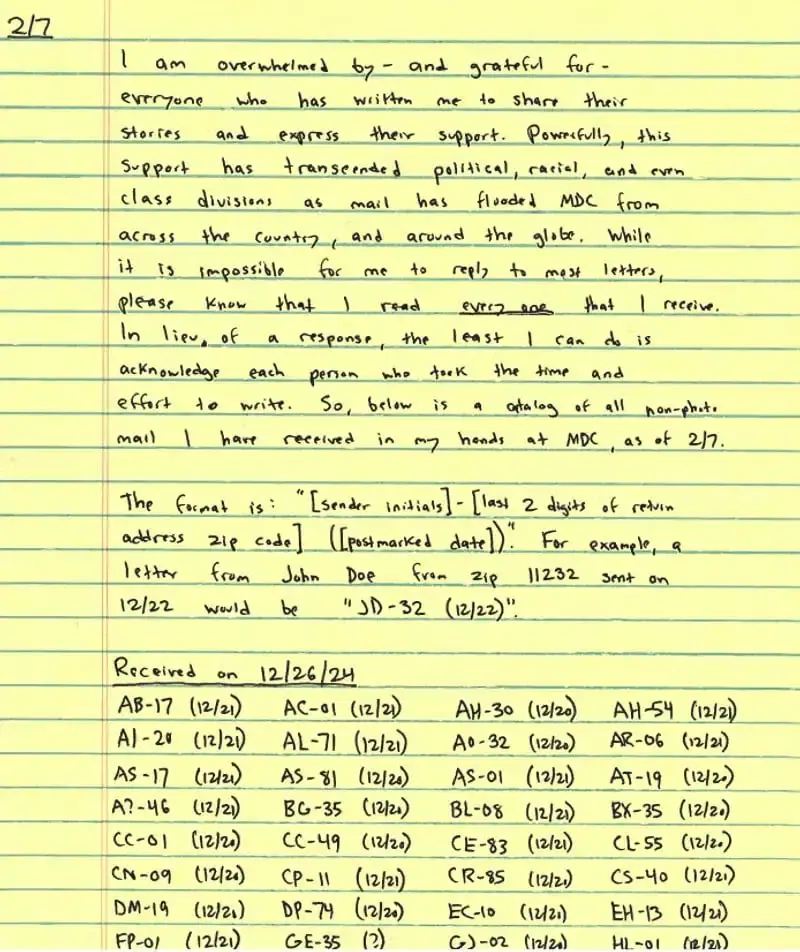 2/7
I am overwhelmed by - and grateful for -
everyone who has written me to share their
stories and express their support. Powerfully, this
support has transcended political, racial, and even
class divisions as mail has flooded MDC from
across the country, and around the globe. While
it is impossible for me to reply to most letters,
please know that I read every one that I receive.
In lieu of a response, the least I can do is
acknowledge each person who took the time and
effort to write. So, below is a catalog of all non-photo
mail I have received in my hands at MDC, as of 2/7.
The format is: "[sender initials]-[last 2 digits of return
address zip code] ([postmarked date])". For example, a
letter from John Doe from zip 11232 sent on
12/22 would be "JD-32 (12/22)".
Received on 12/26/24
AB-17 (12/21) AC-01 (12/21) AH-30 (12/20) AH-54 (12/21)
AI-20 (12/21) AL-71 (12/21) AO-32 (12/20) AR-06 (12/21)
AS-17 (12/21) AS-81 (12/20) AS-01 (12/21) AT-19 (12/20)
A?-46 (12/21) BG-35 (12/20) BL-08 (12/21) BX-35 (12/20)
CC-01 (12/20) CC-49 (12/20) CE-83 (12/21) CL-55 (12/20)
CN-09 (12/20) CP-11 (12/21) CR-85 (12/20) CS-40 (12/21)
DM-19 (12/21) DP-74 (12/20) EC-10 (12/21) EH-13 (12/21)
FP-01 (12/21) GE-35 (?) GJ-02 (12/20) HL-01 (12/21)